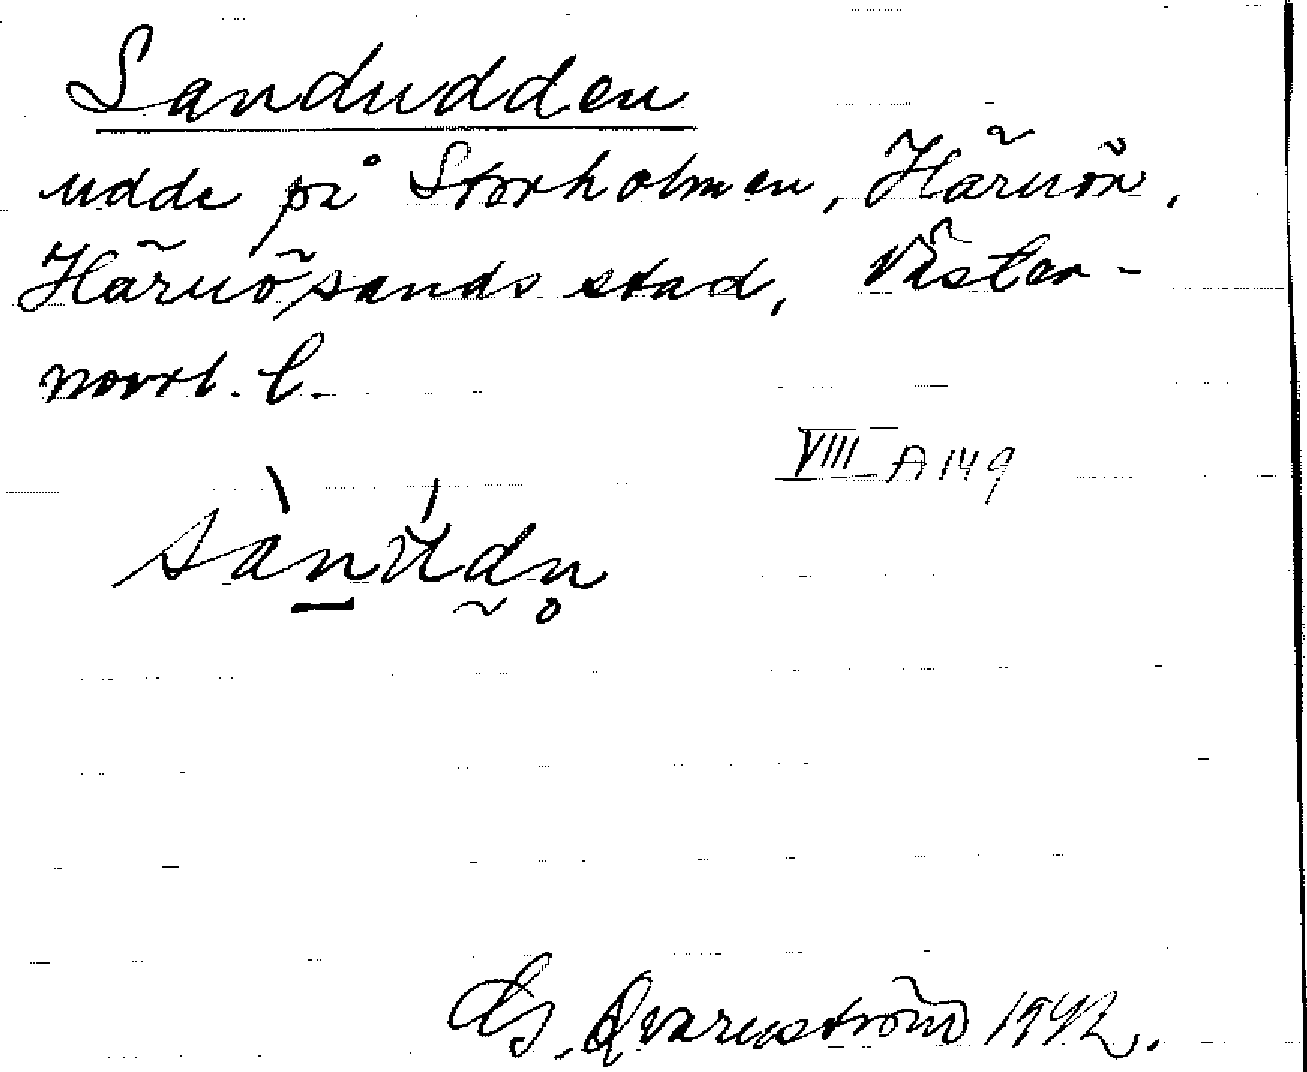 Sandudden
udde på Storholmen, Härnön,
Härnösands stad, Väster-
norrl. l.
VIII A 149
sànúdn
G. Qvarnström 1942.